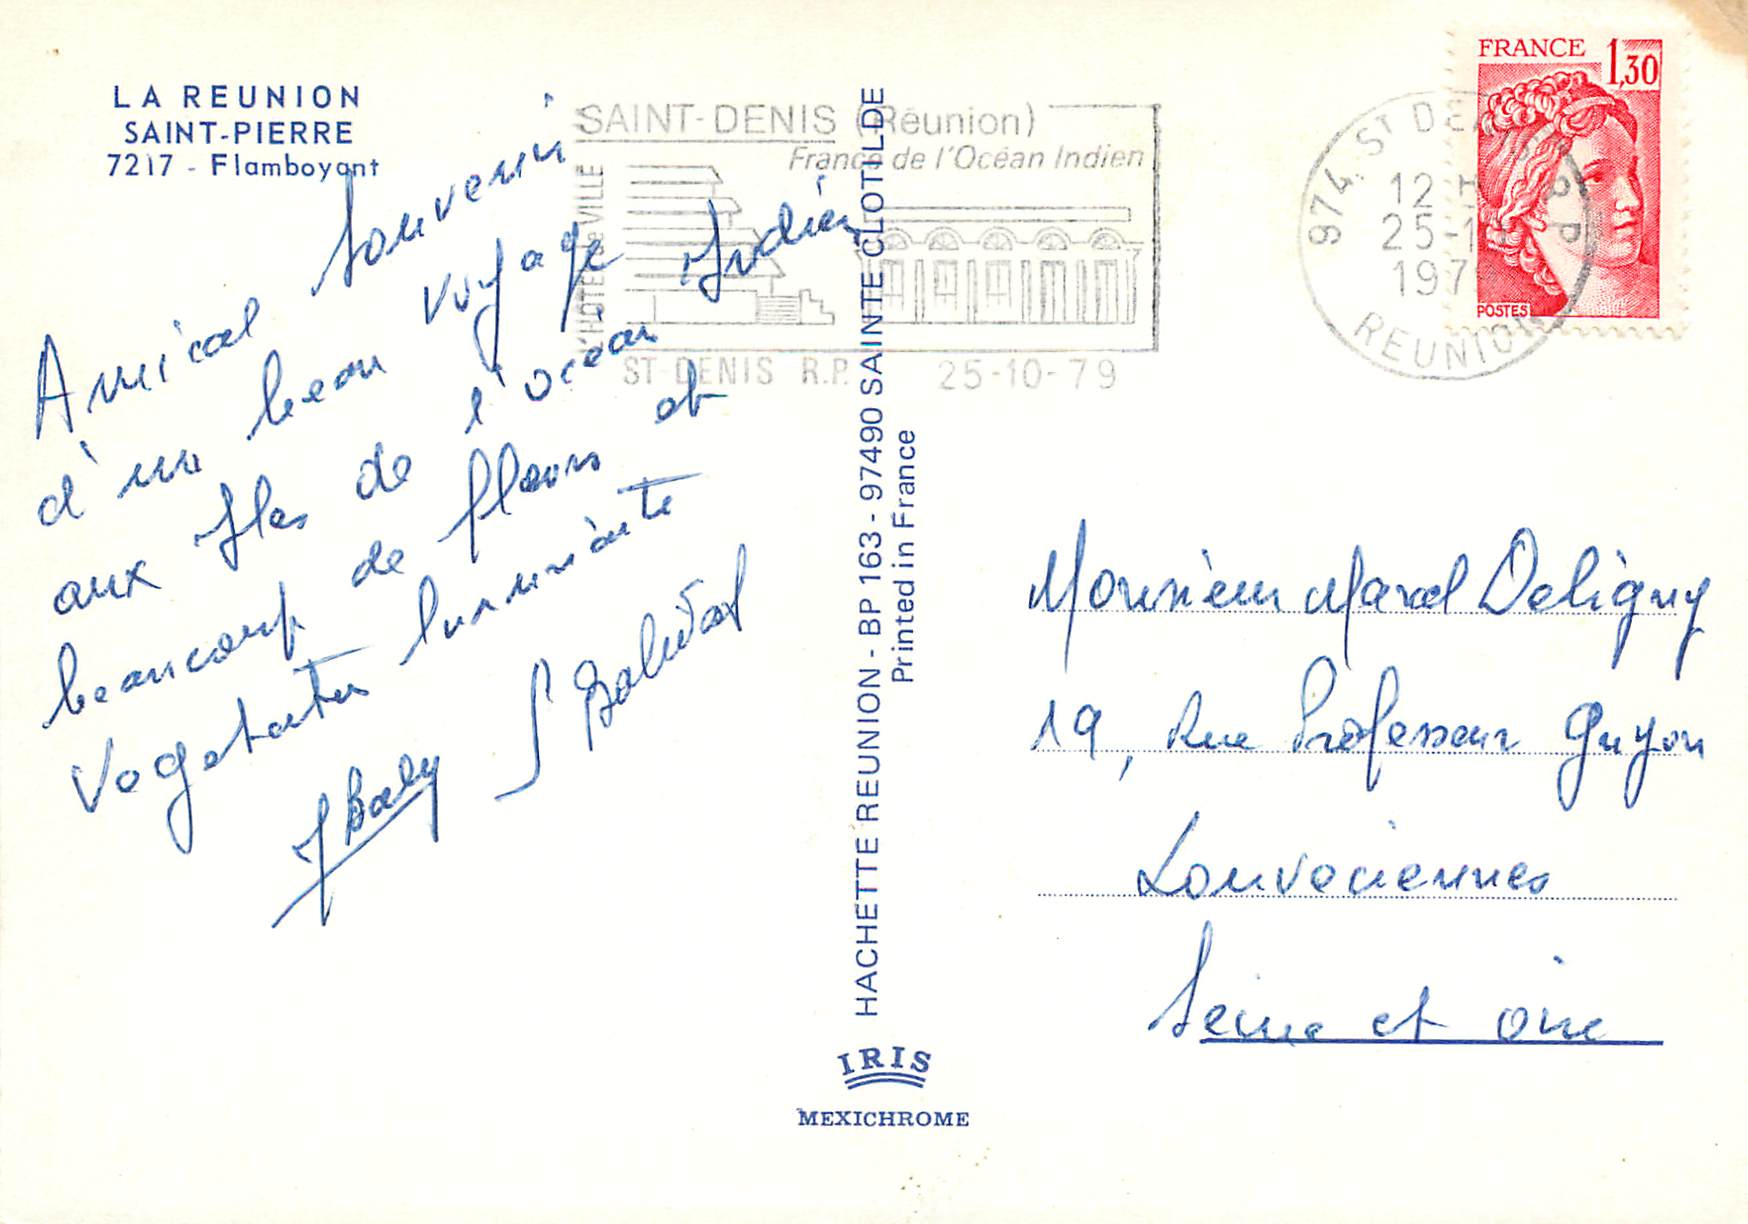 LA REUNION
SAINT-PIERRE
7217 - Flamboyant
Amical souvenir
d'un beau voyage
aux Iles de l'océan Indien
beaucoup de fleurs et
Vegetation luxuriante
SAINT-DENIS (Réunion)
France de l'Océan Indien
L'HÔTEL de VILLE
ST-DENIS R.P. 25-10-79
HACHETTE REUNION - BP 163 - 97490 SAINTE CLOTILDE
Printed in France
IRIS
MEXICHROME
FRANCE 1,30
POSTES
974 ST DENIS R.P.
12 H
25-10
1979
REUNION
Monsieur Marcel Deligny
19, Rue Professeur Guyon
Louveciennes
Seine et oise